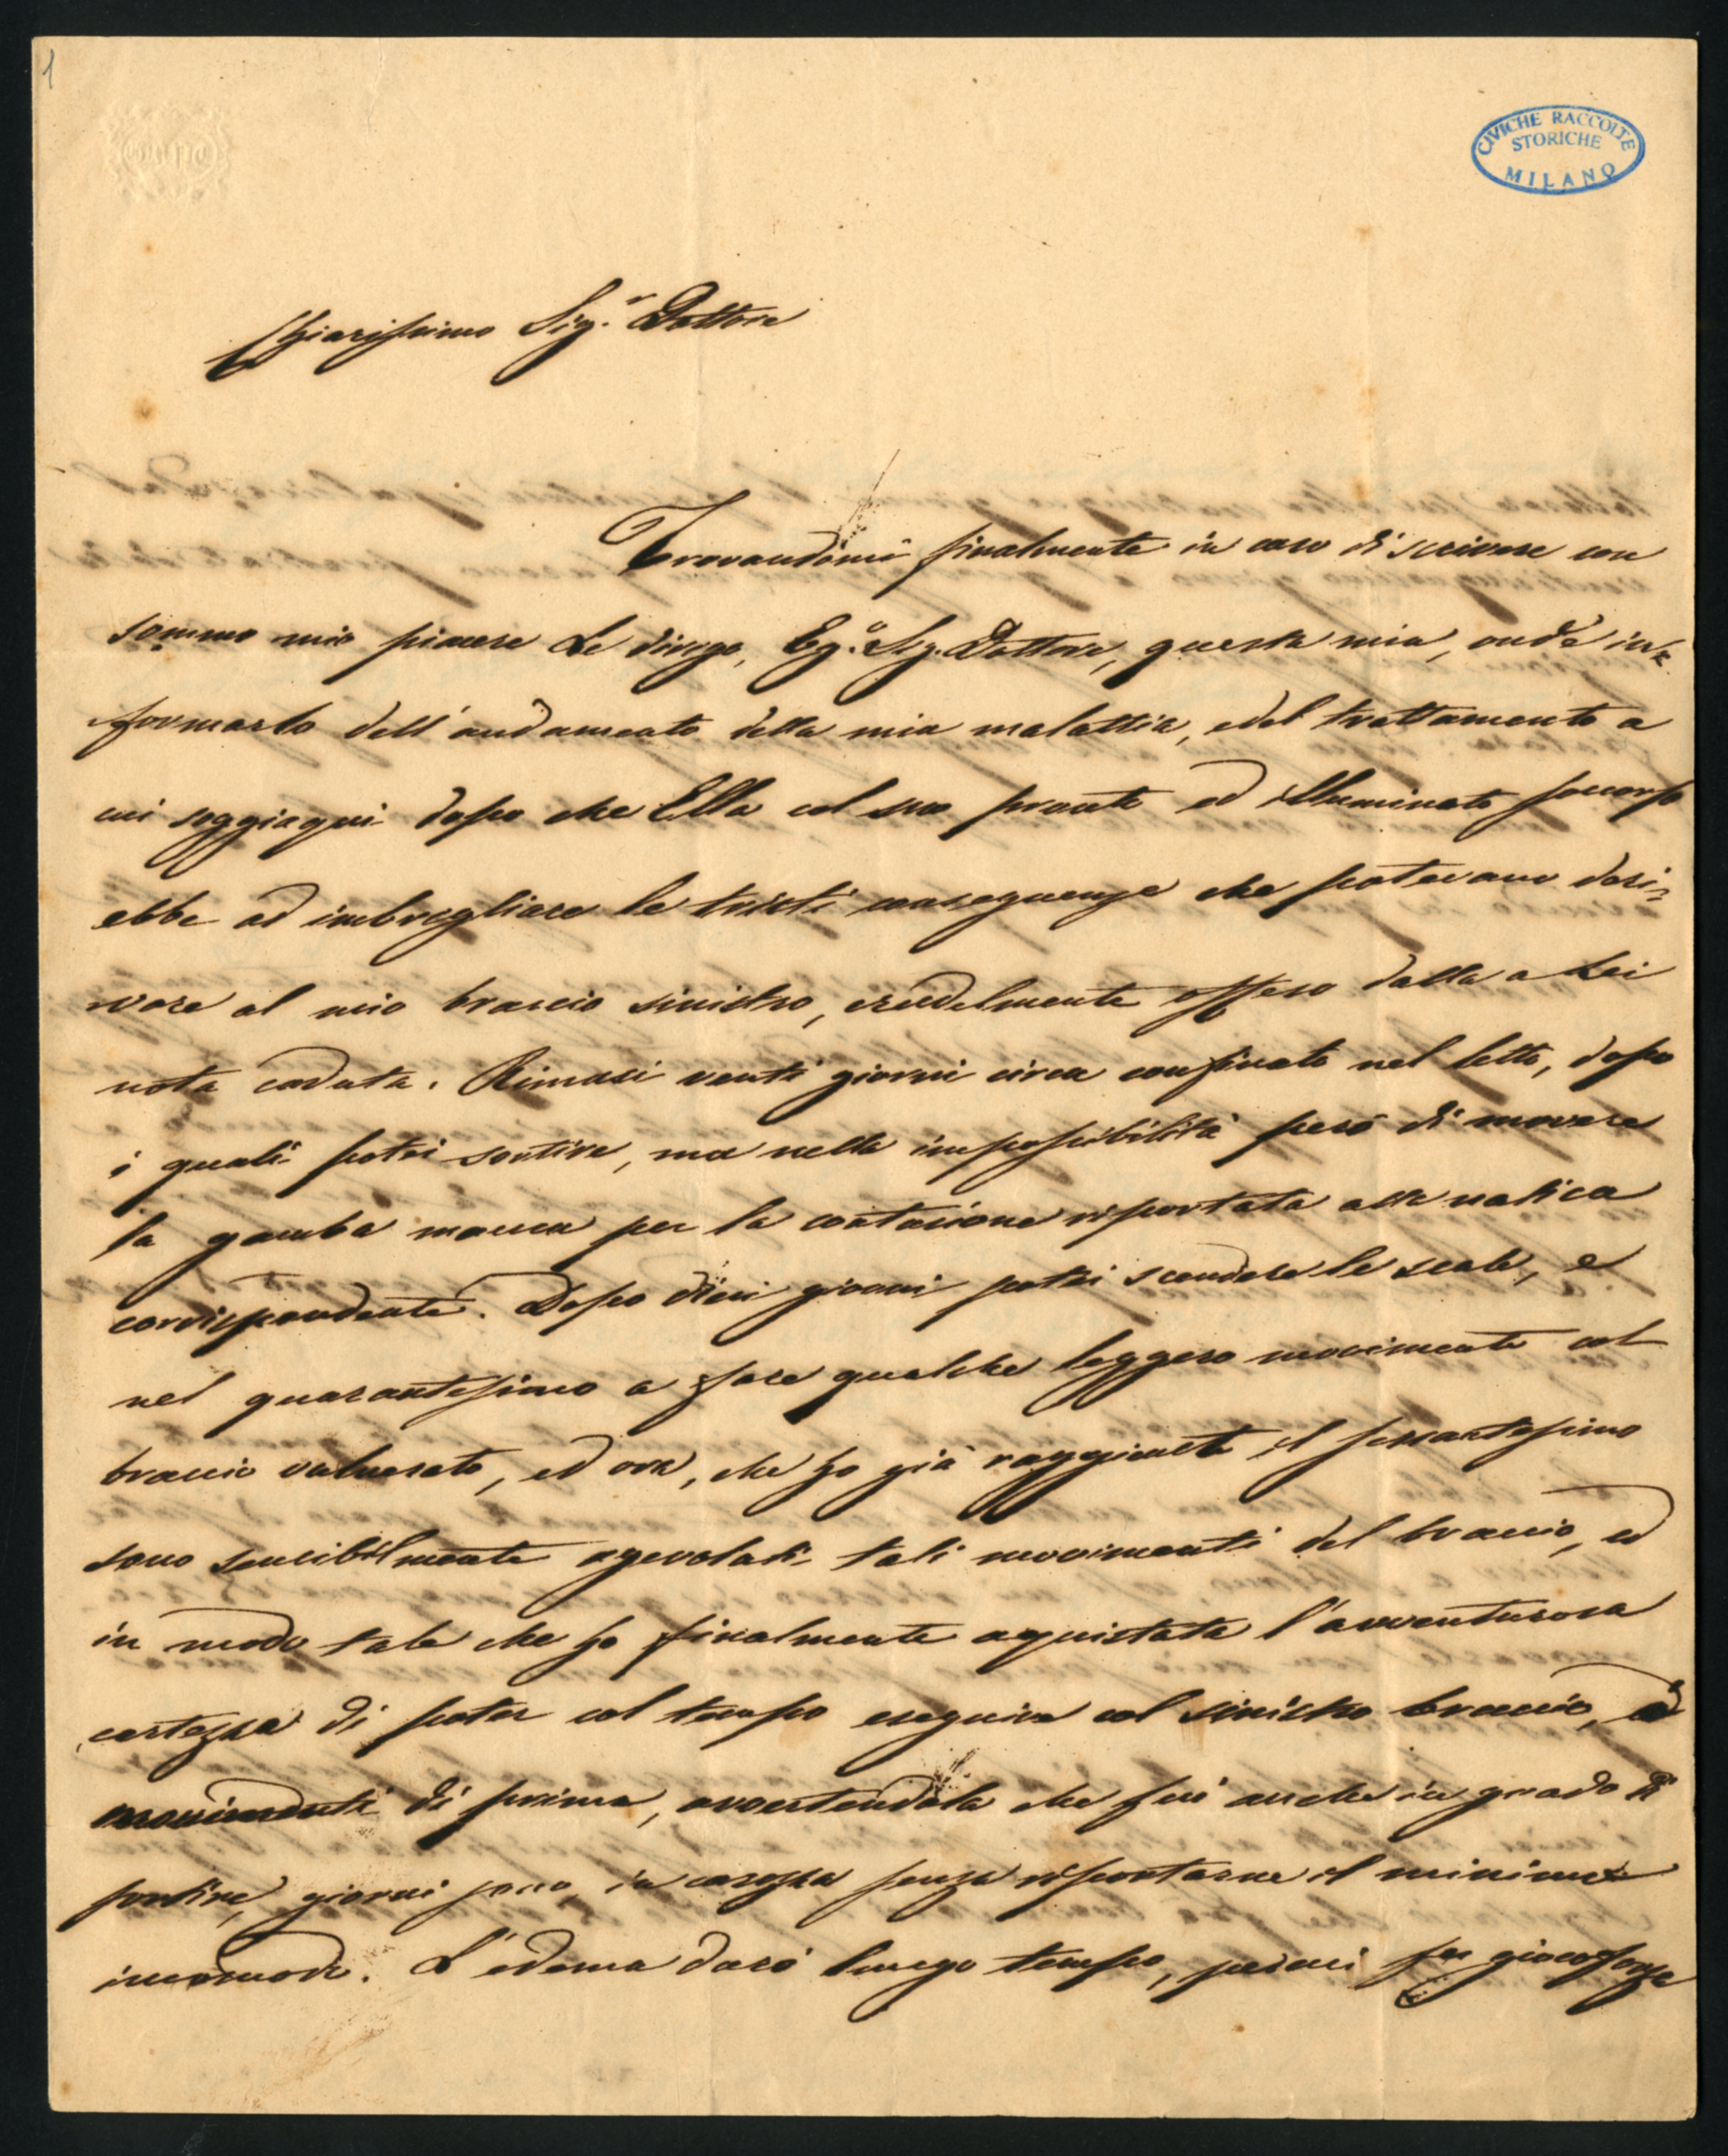 1
CIVICHE RACCOLTE
STORICHE
MILANO
Chiarissimo Sig.r Dottore
Trovandomi finalmente in caso di scrivere con
sommo mio piacere Le dirigo, Eg.o Sig. Dottore, questa mia, onde in=
formarlo dell'andamento della mia malattia, e del trattamento a
cui soggiaqui dopo che Ella col suo pronto ed illuminato soccorso
ebbe ad imbrigliare le tristi conseguenze che potevano deri=
vare al mio braccio sinistro, crudelmente offeso dalla a Lei
nota caduta. Rimasi venti giorni circa confinato nel letto, dopo
i quali potei sortire, ma nella impossibilità però di movere
la gamba manca per la contusione riportata alla natica
corrispondente. Dopo dieci giorni potei scendere le scale, e
nel quarantesimo a fare qualche leggero movimento col
braccio vulnerato, ed ora, che ho già raggiunto il sessantesimo
sono sensibilmente agevolati tali movimenti del braccio, ed
in modo tale che ho finalmente aquistata l'avventurosa
certezza di poter col tempo eseguire col sinistro braccio,
movimenti di prima, avvertendola che fui anche in grado di
sortire, giorni sono, in carozza senza riportarne il minimo
incomodo. L'edema durò lungo tempo, per cui fu giocoforza